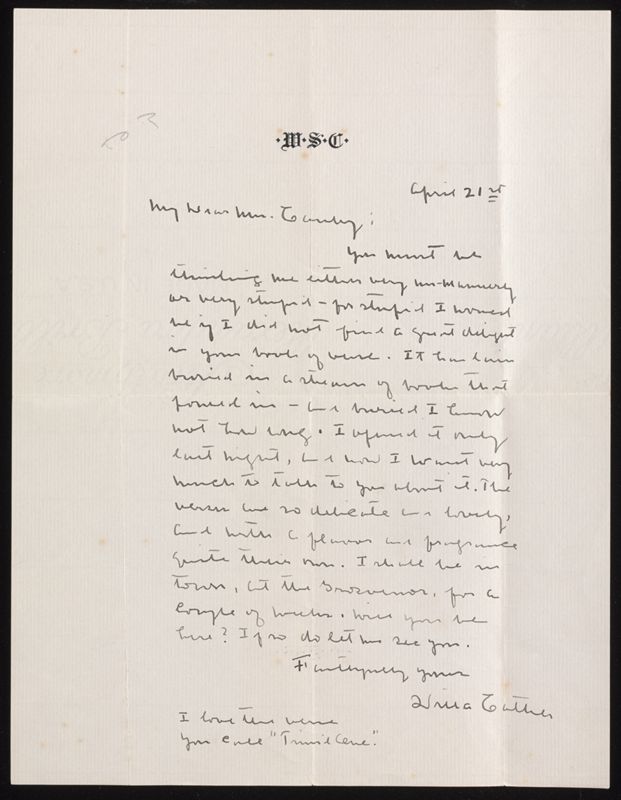 ·W·S·C·
April 21st
My Dear Mrs.
You must be
thinking me either very un-mannerly
or very stupid – for stupid I would
be if I did not find a great delight
in your book of verse. It has lain
buried in a stream of books that
poured in – and buried I know
not how long. I opened it only
last night, and now I want very
much to talk to you about it. The
verses are so delicate and lovely,
and with a flavor and fragrance
quite their own. I shall be in
town, at the Grosvenor, for a
couple of weeks. Will you be
here? If so do let me see you.
Faithfully yours
Willa Cather
I love the verse
you call